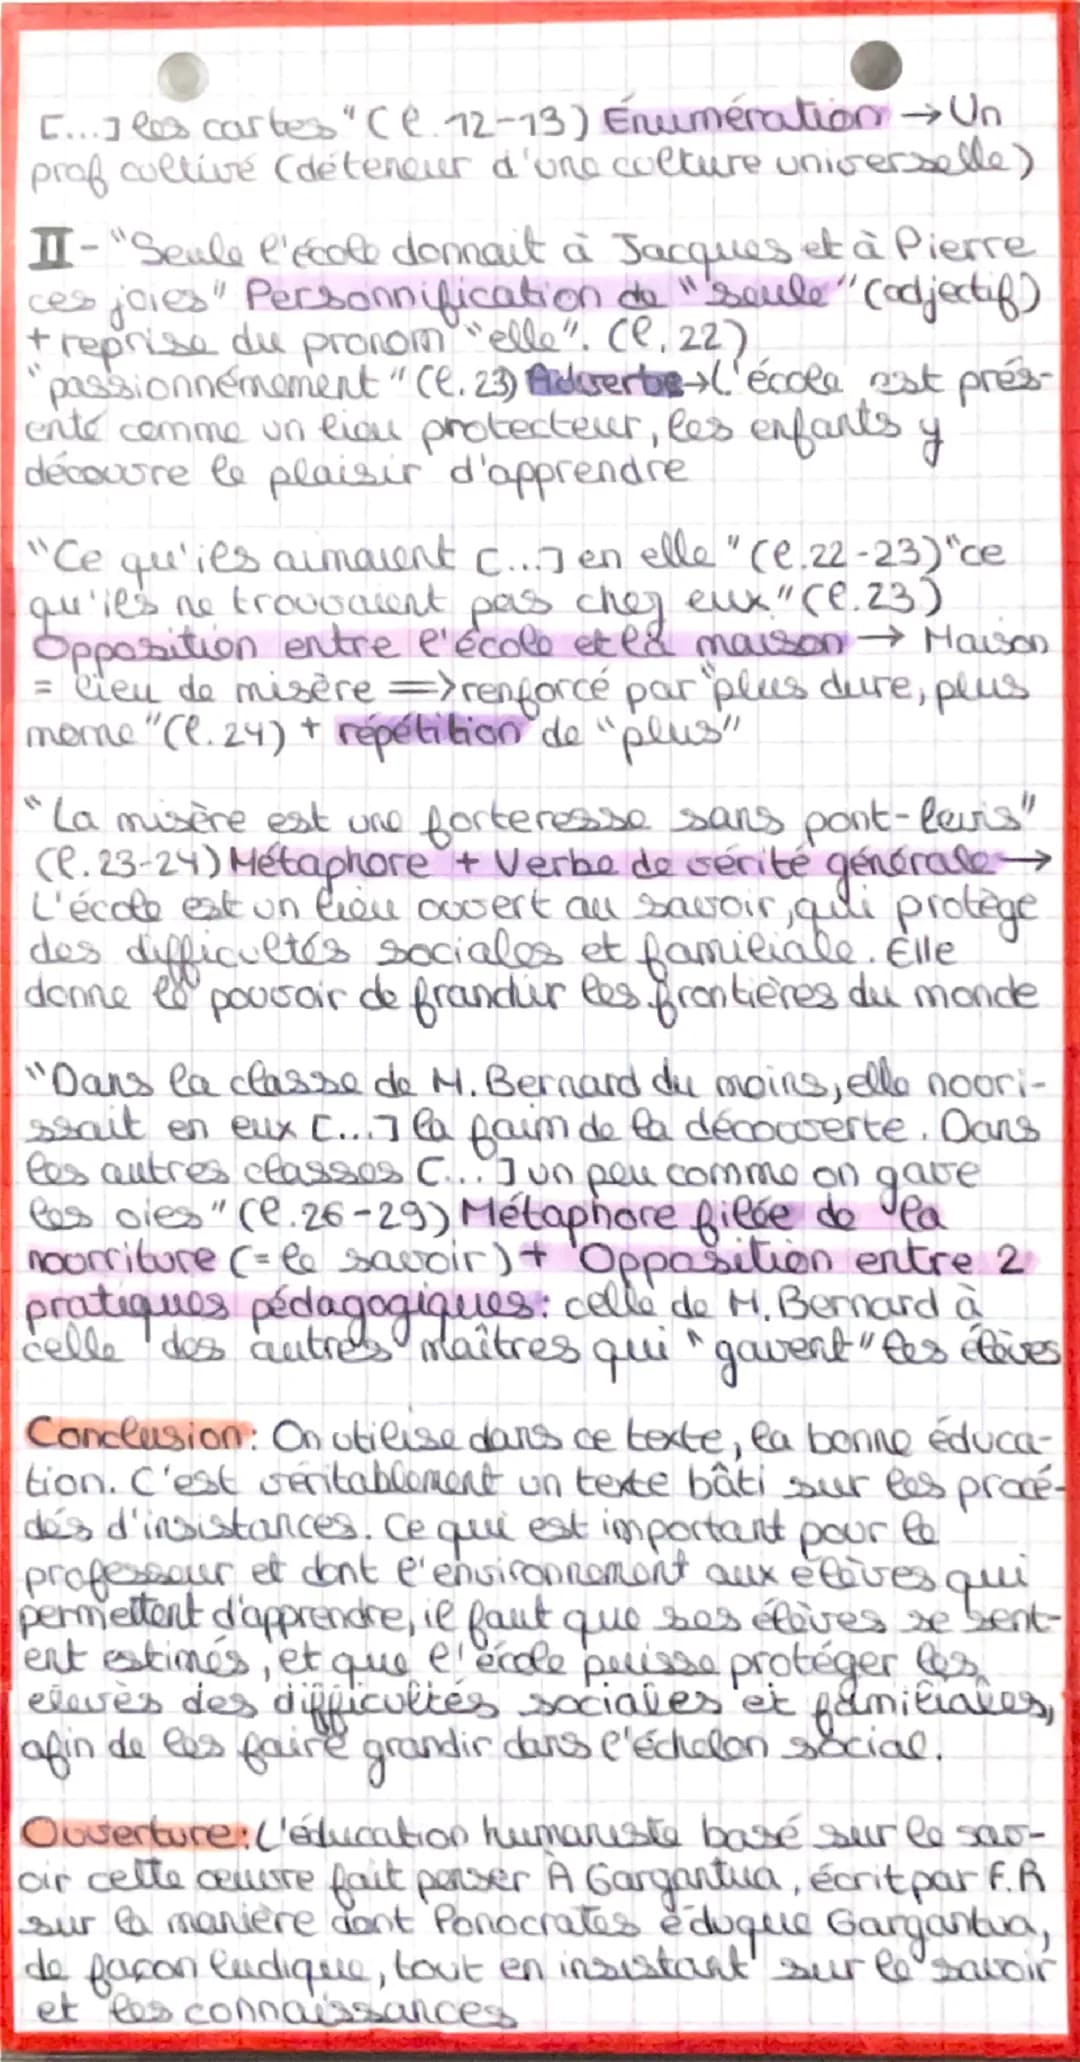 [...] les cartes" (l. 12-13) Énumération → Un
prof cultivé (déteneur d'une culture universelle)
II - "Seule l'école donnait à Jacques et à Pierre
ces joies" Personnification de "seule" (adjectif)
+ reprise du pronom "elle". (l. 22)
"passionnémement" (l. 23) Adverbe → L'école est prés-
enté comme un lieu protecteur, les enfants y
découvre le plaisir d'apprendre
"Ce qu'ils aimaient [...] en elle" (l. 22-23) "ce
qu'ils ne trouvaient pas chez eux" (l. 23)
Opposition entre l'école et la maison → Maison
= lieu de misère => renforcé par "plus dure, plus
morne" (l. 24) + répétition de "plus"
"La misère est une forteresse sans pont-levis"
(l. 23-24) Métaphore + Verbe de vérité générale →
L'école est un lieu ouvert au savoir, qui protège
des difficultés sociales et familiale. Elle
donne le pouvoir de franchir les frontières du monde
"Dans la classe de M. Bernard du moins, elle nourri-
ssait en eux [...] la faim de la découverte. Dans
les autres classes [...] un peu comme on gave
les oies" (l. 26-29) Métaphore filée de la
nourriture (= le savoir) + Opposition entre 2
pratiques pédagogiques: celle de M. Bernard à
celle des autres maîtres qui "gavent" les élèves
Conclusion: On utilise dans ce texte, la bonne éduca-
tion. C'est véritablement un texte bâti sur les procé-
dés d'insistances. Ce qui est important pour le
professeur et dont l'environnement aux élèves qui
permettent d'apprendre, il faut que ses élèves se sent-
ent estimés, et que l'école puisse protéger les
elevès des difficultés sociales et familiales,
afin de les faire grandir dans l'échelon social.
Ouverture: L'éducation humaniste basé sur le sav-
oir cette œuvre fait penser À Gargantua, écrit par F.R
sur la manière dont Ponocrates éduque Gargantua,
de façon ludique, tout en insistant sur le savoir
et les connaissances